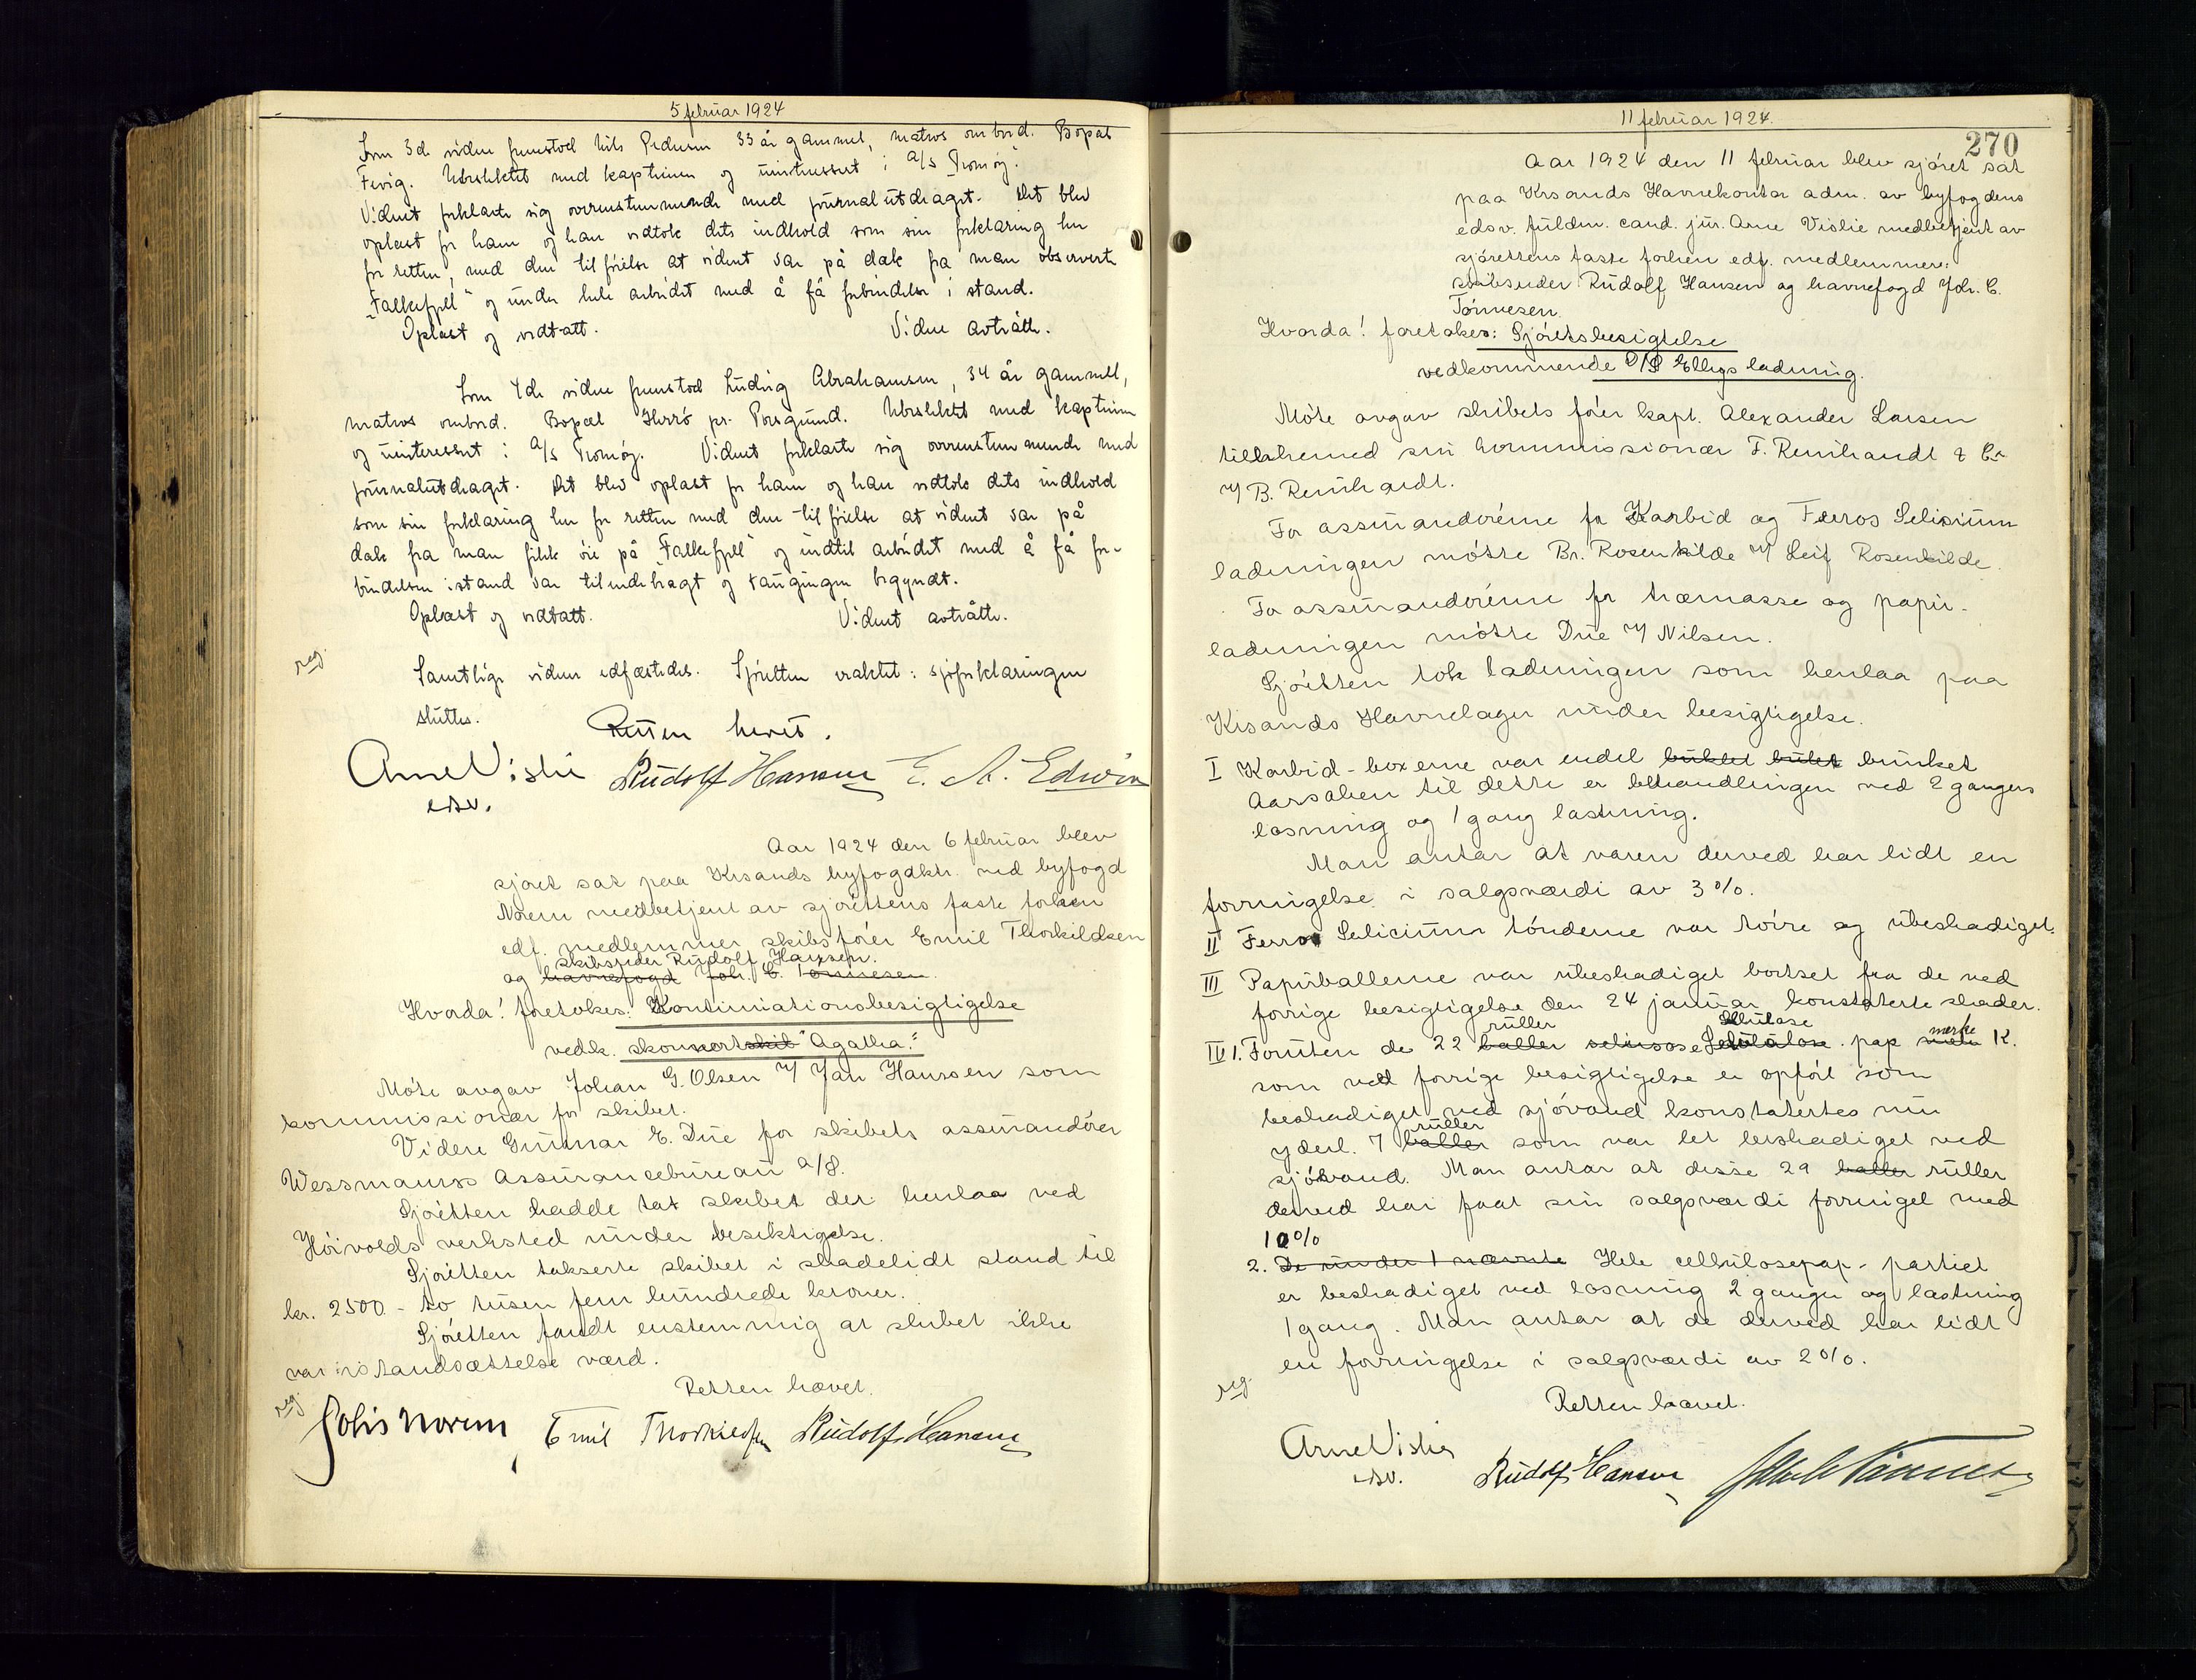 5 februar 1924
Som 3de vidne fremstod Nils Pedersen 33 år gammel, matros ombord. Bopæl
Fevig. Ubeslektet med kapteinen og uinteressert i A/S Tromøy.
Vidnet forklarte sig overensstemmende med journalutdraget. Det blev
oplæst for ham og han vedtok dets indhold som sin forklaring her
for retten, med den tilføielse at vidnet var på dæk fra man observerte
"Falkefjell" og under hele arbeidet med å få forbindelse i stand.
Oplæst og vedtatt. Vidne avtrådte.
Som 4de vidne fremstod Ludvig Abrahamsen, 34 år gammel,
matros ombord. Bopæl Herrø pr. Porsgrund. Ubeslektet med kapteinen
og uinteressert i A/S Tromøy. Vidnet forklarte sig overensstemmende med
journalutdraget. Det blev oplæst for ham og han vedtok dets indhold
som sin forklaring her for retten med den tilføielse at vidnet var på
dæk fra man fikk øie på "Falkefjell" og indtil arbeidet med å få for-
bindelsen istand var tilendebragt og taugingen begyndt.
Oplæst og vedtatt. Vidnet avtrådte.
reg.
Samtlige vidner edfæstedes. Sjøretten eraktet: sjøforklaringen
sluttes.
Retten hevet.
Arne Vislie Rudolf Hansen E. A. Edwin
edsv.
Aar 1924 den 6 februar blev
sjøret sat paa Krsands byfogdktr. ved byfogd
Norem medbetjent av sjørettens faste forhen
edf. medlemmer skibsfører Emil Thorkildsen
skibsreder Rudolf Hansen.
og havnefogd Joh. C. Tönnesen.
Hvorda! foretokes: Kontinuationsbesigtigelse
vedk. skonnertskib "Agatha".
Møte avgav Johan G. Olsen v/ Jan Hanssen som
kommissionær for skibet.
Videre Gunnar E. Due for skibets assurandører
Wessmanns Assurancebureau A/S.
Sjøretten hadde tat skibet der henlaa ved
Höivolds verksted under besiktigelse.
Sjøretten takserte skibet i skadelidt stand til
kr. 2500 - to tusen fem hundrede kroner.
Sjøretten fandt enstemmig at skibet ikke
var istandsættelse værd.
Retten hævet.
reg.
Johs Norem Emil Thorkildsen Rudolf Hansen
11 februar 1924.
270
Aar 1924 den 11 februar blev sjøret sat
paa Krsands Havnekontor adm. av byfogdens
edsv. fuldm. cand. jur. Arne Vislie medbetjent av
sjørettens faste forhen edf. medlemmer:
skibsreder Rudolf Hansen og havnefogd Joh. C.
Tönnesen.
Hvorda! foretokes: Sjøretsbesigtelse
vedkommende D/S Ellys ladning.
Møte avgav skibets fører kapt. Alexander Larsen
tillikemed sin kommissionær F. Reinhardt & Co
v/ B. Reinhardt.
For assurandørerne for Karbid og Ferros Selisium
ladningen møtte Br. Rosenkilde v/ Leif Rosenkilde.
For assurandørerne for træmasse og papir-
ladningen møtte Due v/ Nilsen.
Sjøretten tok ladningen som henlaa paa
Krsands Havnelager under besigtigelse.
I Karbid-boxerne var endel buklet bulet bunket
Aarsaken til dette er behandlingen ved 2 gangers
losning og 1 gang lastning.
Man antar at varen derved har lidt en
forringelse i salgsværdi av 3%.
II Ferro Selicium tønderne var tørre og ubeskadiget.
III Papirballerne var ubeskadiget bortset fra de ved
forrige besigtigelse den 24 januar konstaterte skader.
ruller Cellulose merke
IV 1. Foruten de 22 baller Celulose pap K.
som ved forrige besigtigelse er opført som
beskadiget ved sjøvand konstatertes nu
ruller
yderl. 7 baller som var let beskadiget ved
sjøvand. Man antar at disse 29 baller ruller
derved har faat sin salgsværdi forringet med
10%
2. De under 1 nævnte Hele cellulosepap-partiet
er beskadiget ved losning 2 ganger og lastning
1 gang. Man antar at de derved har lidt
en forringelse i salgsværdi av 2%.
reg.
Retten hævet.
Arne Vislie
edsv. Rudolf Hansen Joh. C. Tönnesen